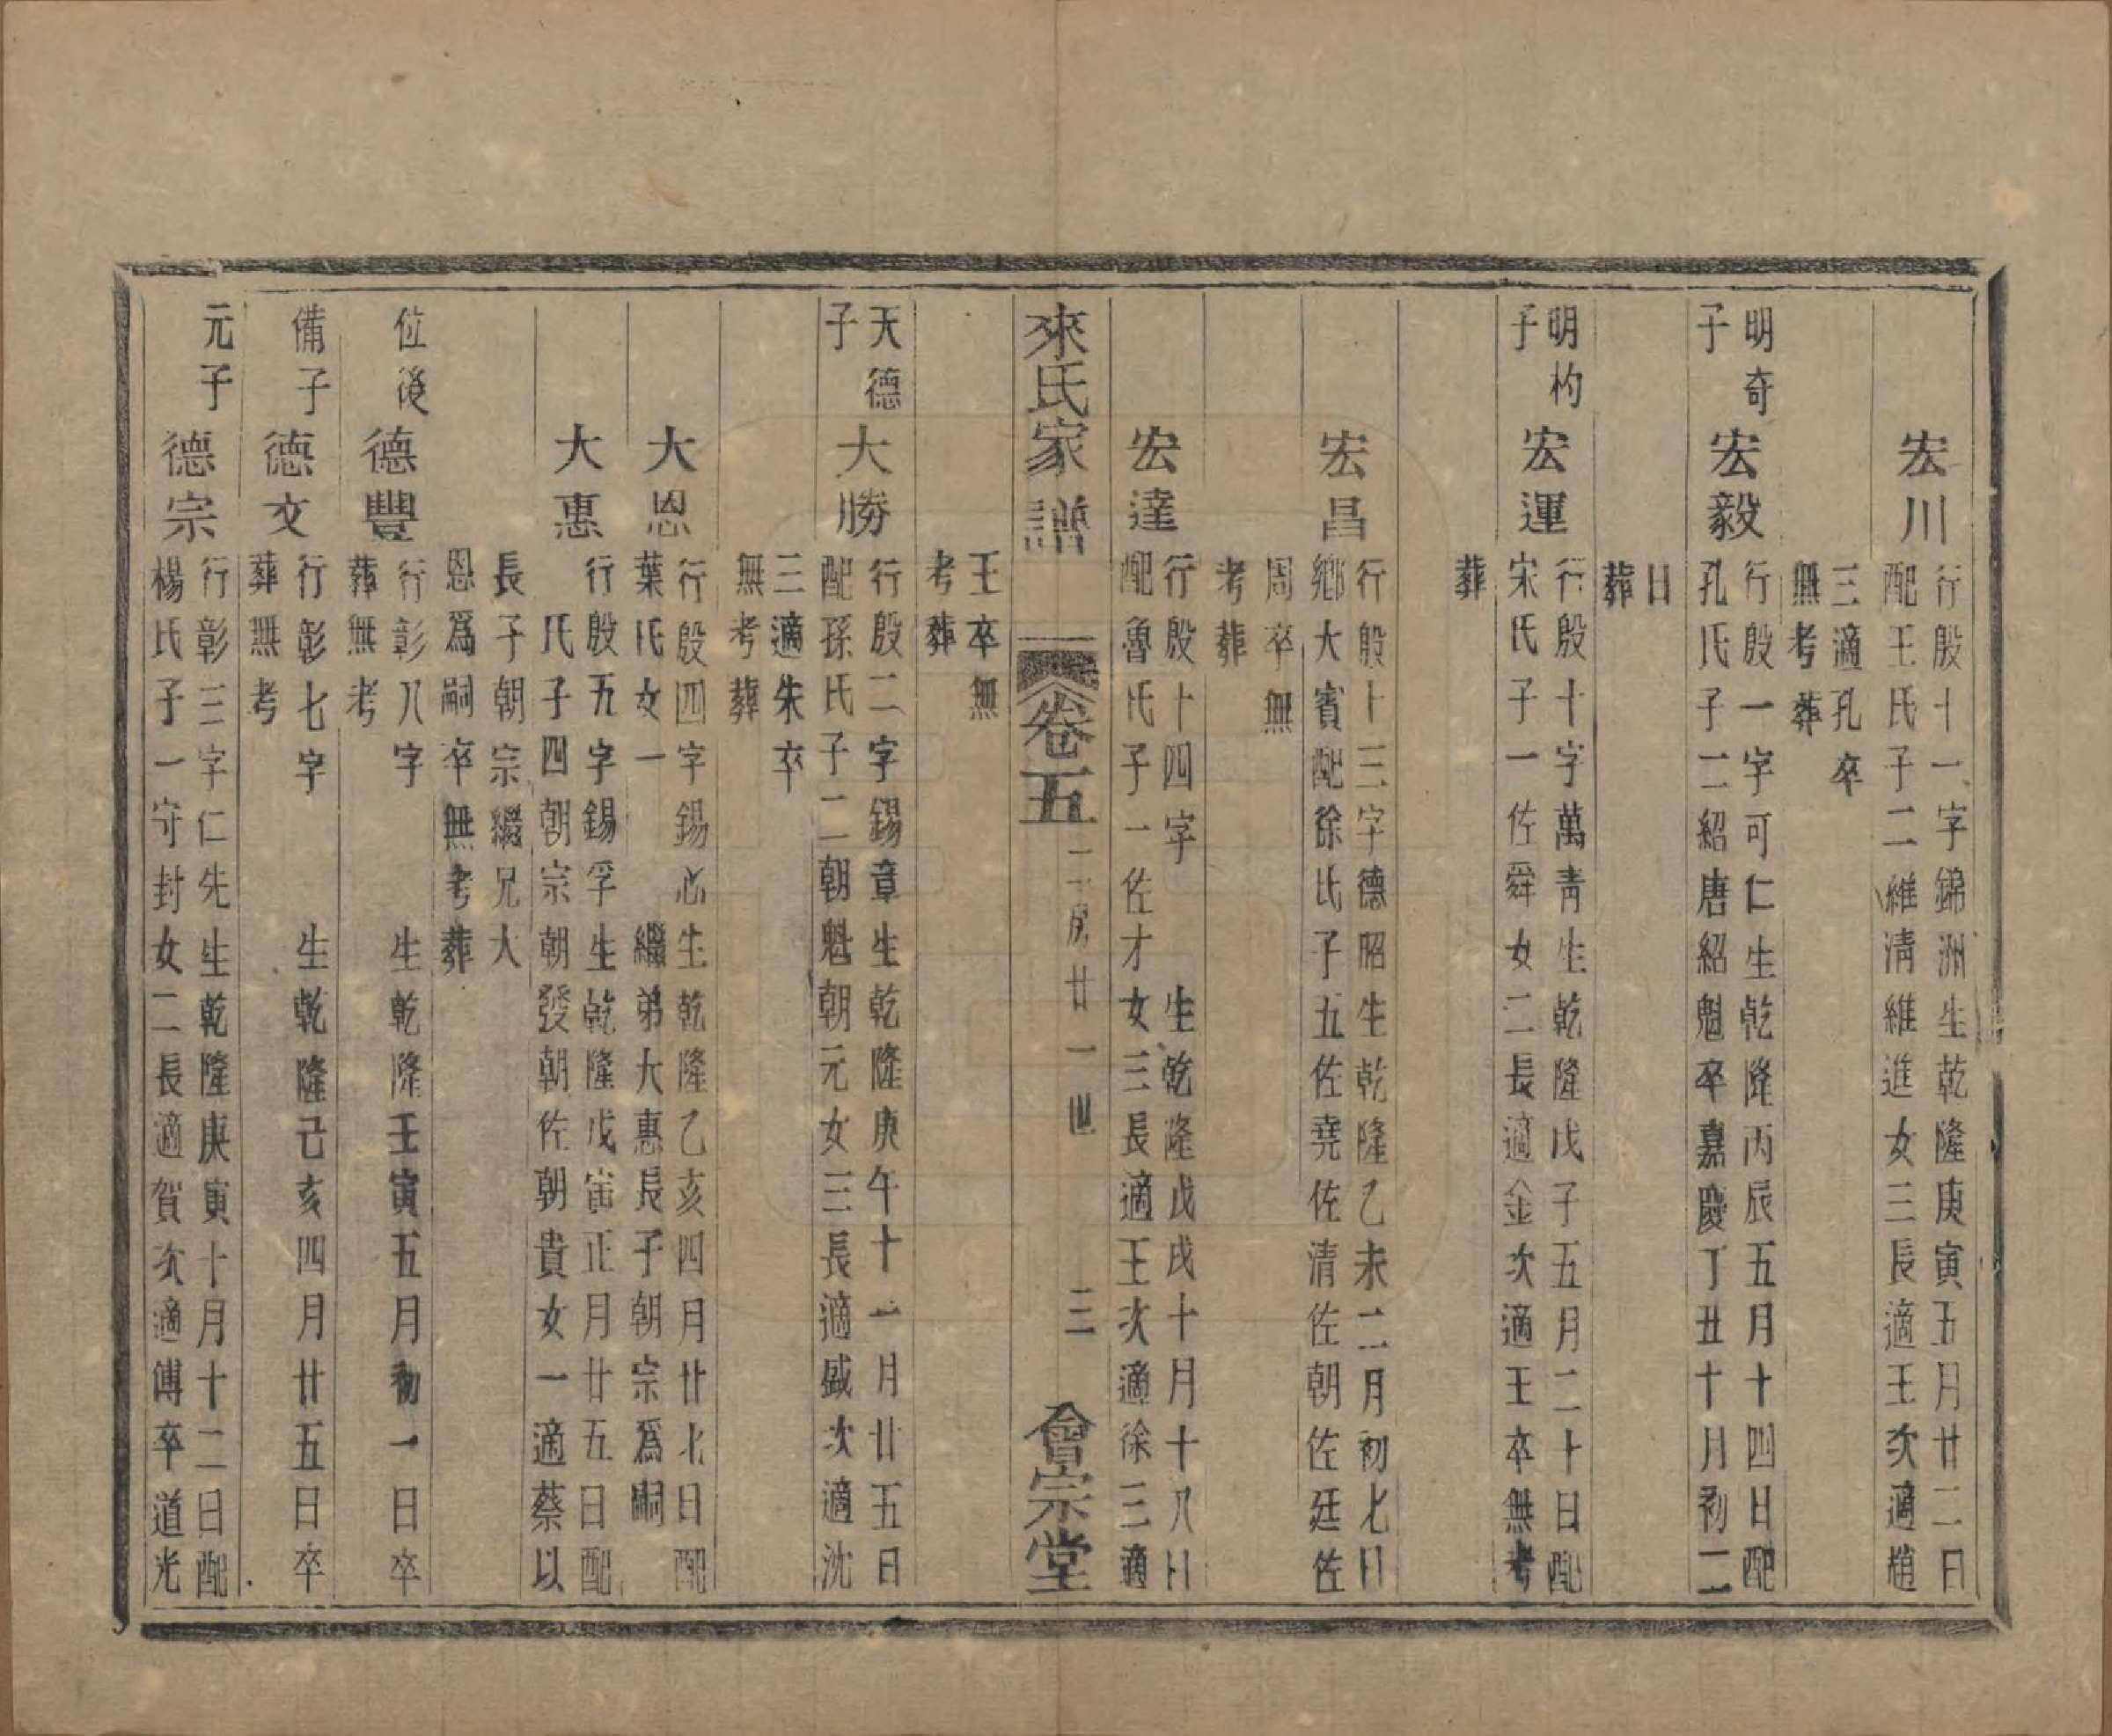 宏川
行殷十一字錦洲生乾隆庚寅五月廿二日
配王氏子二維清維進女三長適王次適趙
三適孔卒
無考葬
明奇
子
宏毅
行殷一字可仁生乾隆丙辰五月十四日配
孔氏子二紹唐紹魁卒嘉慶丁丑十月初二
日
葬
明杓
子
宏運
行殷十字萬青生乾隆戊子五月二十日配
宋氏子一佐舜女二長適金次適王卒無考
葬
宏昌
行殷十三字德昭生乾隆乙未二月初七日
鄉大賓配徐氏子五佐堯佐清佐朝佐廷佐
周卒無
考葬
宏達
行殷十四字 生乾隆戊戌十月十八日
配魯氏子一佐才女三長適王次適徐三適
王卒無
考葬
來氏家譜 卷五 二房廿一世 三 會宗堂
天德
子
大勝
行殷二字錫章生乾隆庚午十一月廿五日
配孫氏子二朝魁朝元女三長適盛次適沈
三適朱卒
無考葬
大恩
行殷四字錫必生乾隆乙亥四月廿七日配
葉氏女一 繼弟大惠長子朝宗爲嗣
大惠
行殷五字錫孚生乾隆戊寅正月廿五日配
氏子四朝宗朝發朝佐朝貴女一適蔡以
長子朝宗繼兄大
恩爲嗣卒無考葬
位後
德豐
行彰八字 生乾隆壬寅五月初一日卒
葬無考
備子
德文
行彰七字 生乾隆己亥四月廿五日卒
葬無考
元子
德宗
行彰三字仁先生乾隆庚寅十月十二日配
楊氏子一守封女二長適賀次適傅卒道光